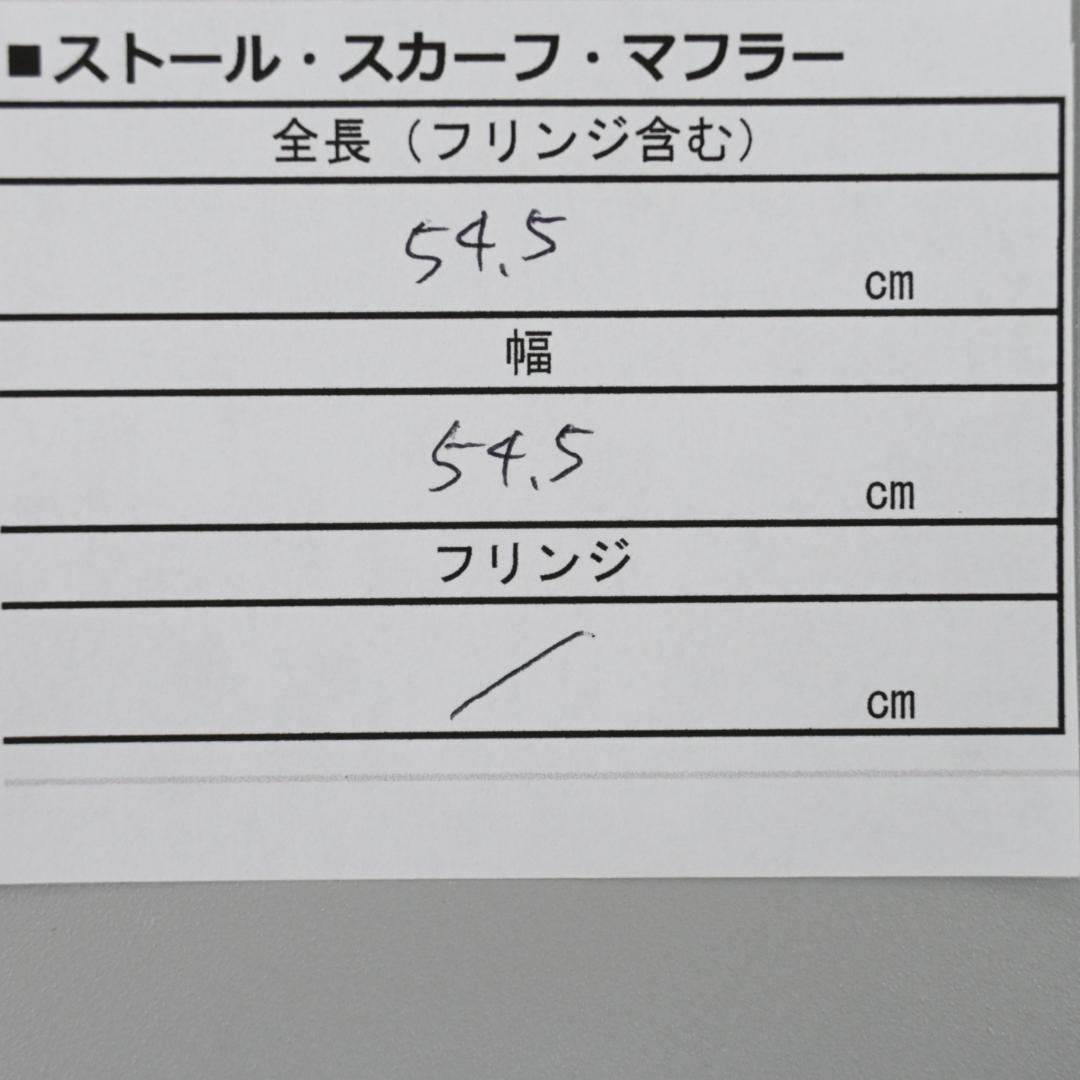 ■ストール・スカーフ・マフラー
全長（フリンジ含む）
54.5 cm
幅
54.5 cm
フリンジ
／ cm